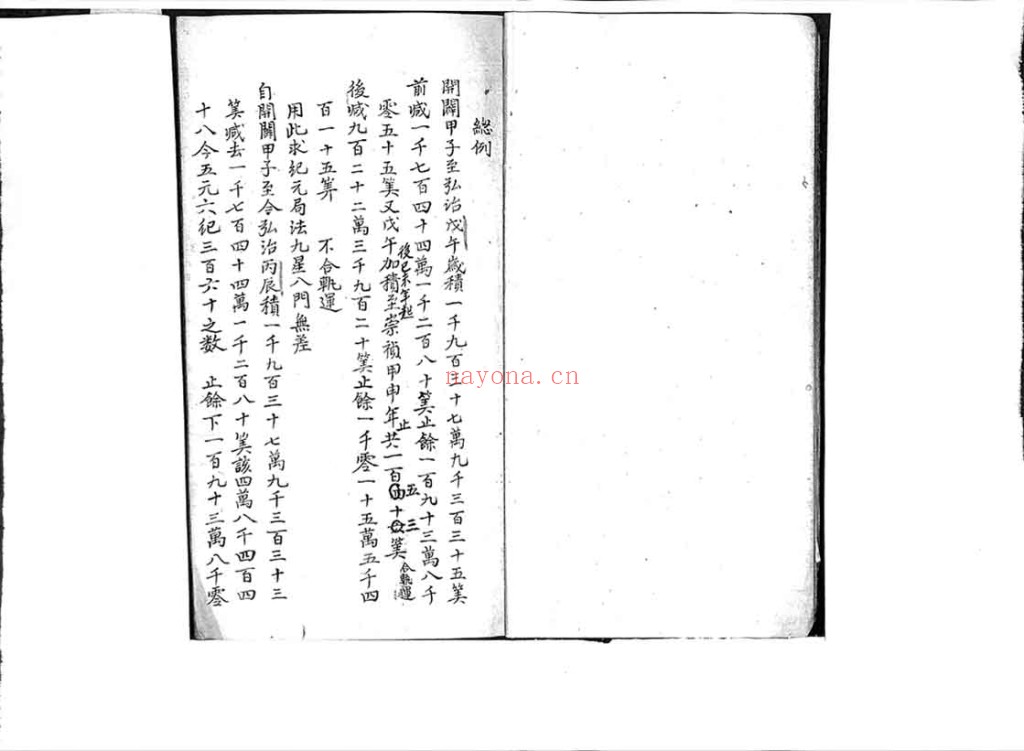 總例
開闢甲子至弘治戊午歲積一千九百三十七萬九千三百三十五筭
前減一千七百四十四萬一千二百八十筭止餘一百九十三萬八千
零五十五筭又戊午加積至崇禎甲申年共一百十筭合軌運
後己未年起
止
五三
後減九百二十二萬三千九百二十筭止餘一千零一十五萬五千四
百一十五筭 不合軌運
用此求紀元局法九星八門無差
自開闢甲子至今弘治丙辰積一千九百三十七萬九千三百三十三
筭減去一千七百四十四萬一千二百八十筭該四萬八千四百四
十八今五元六紀三百六十之数 止餘下一百九十三萬八千零
nayona.cn